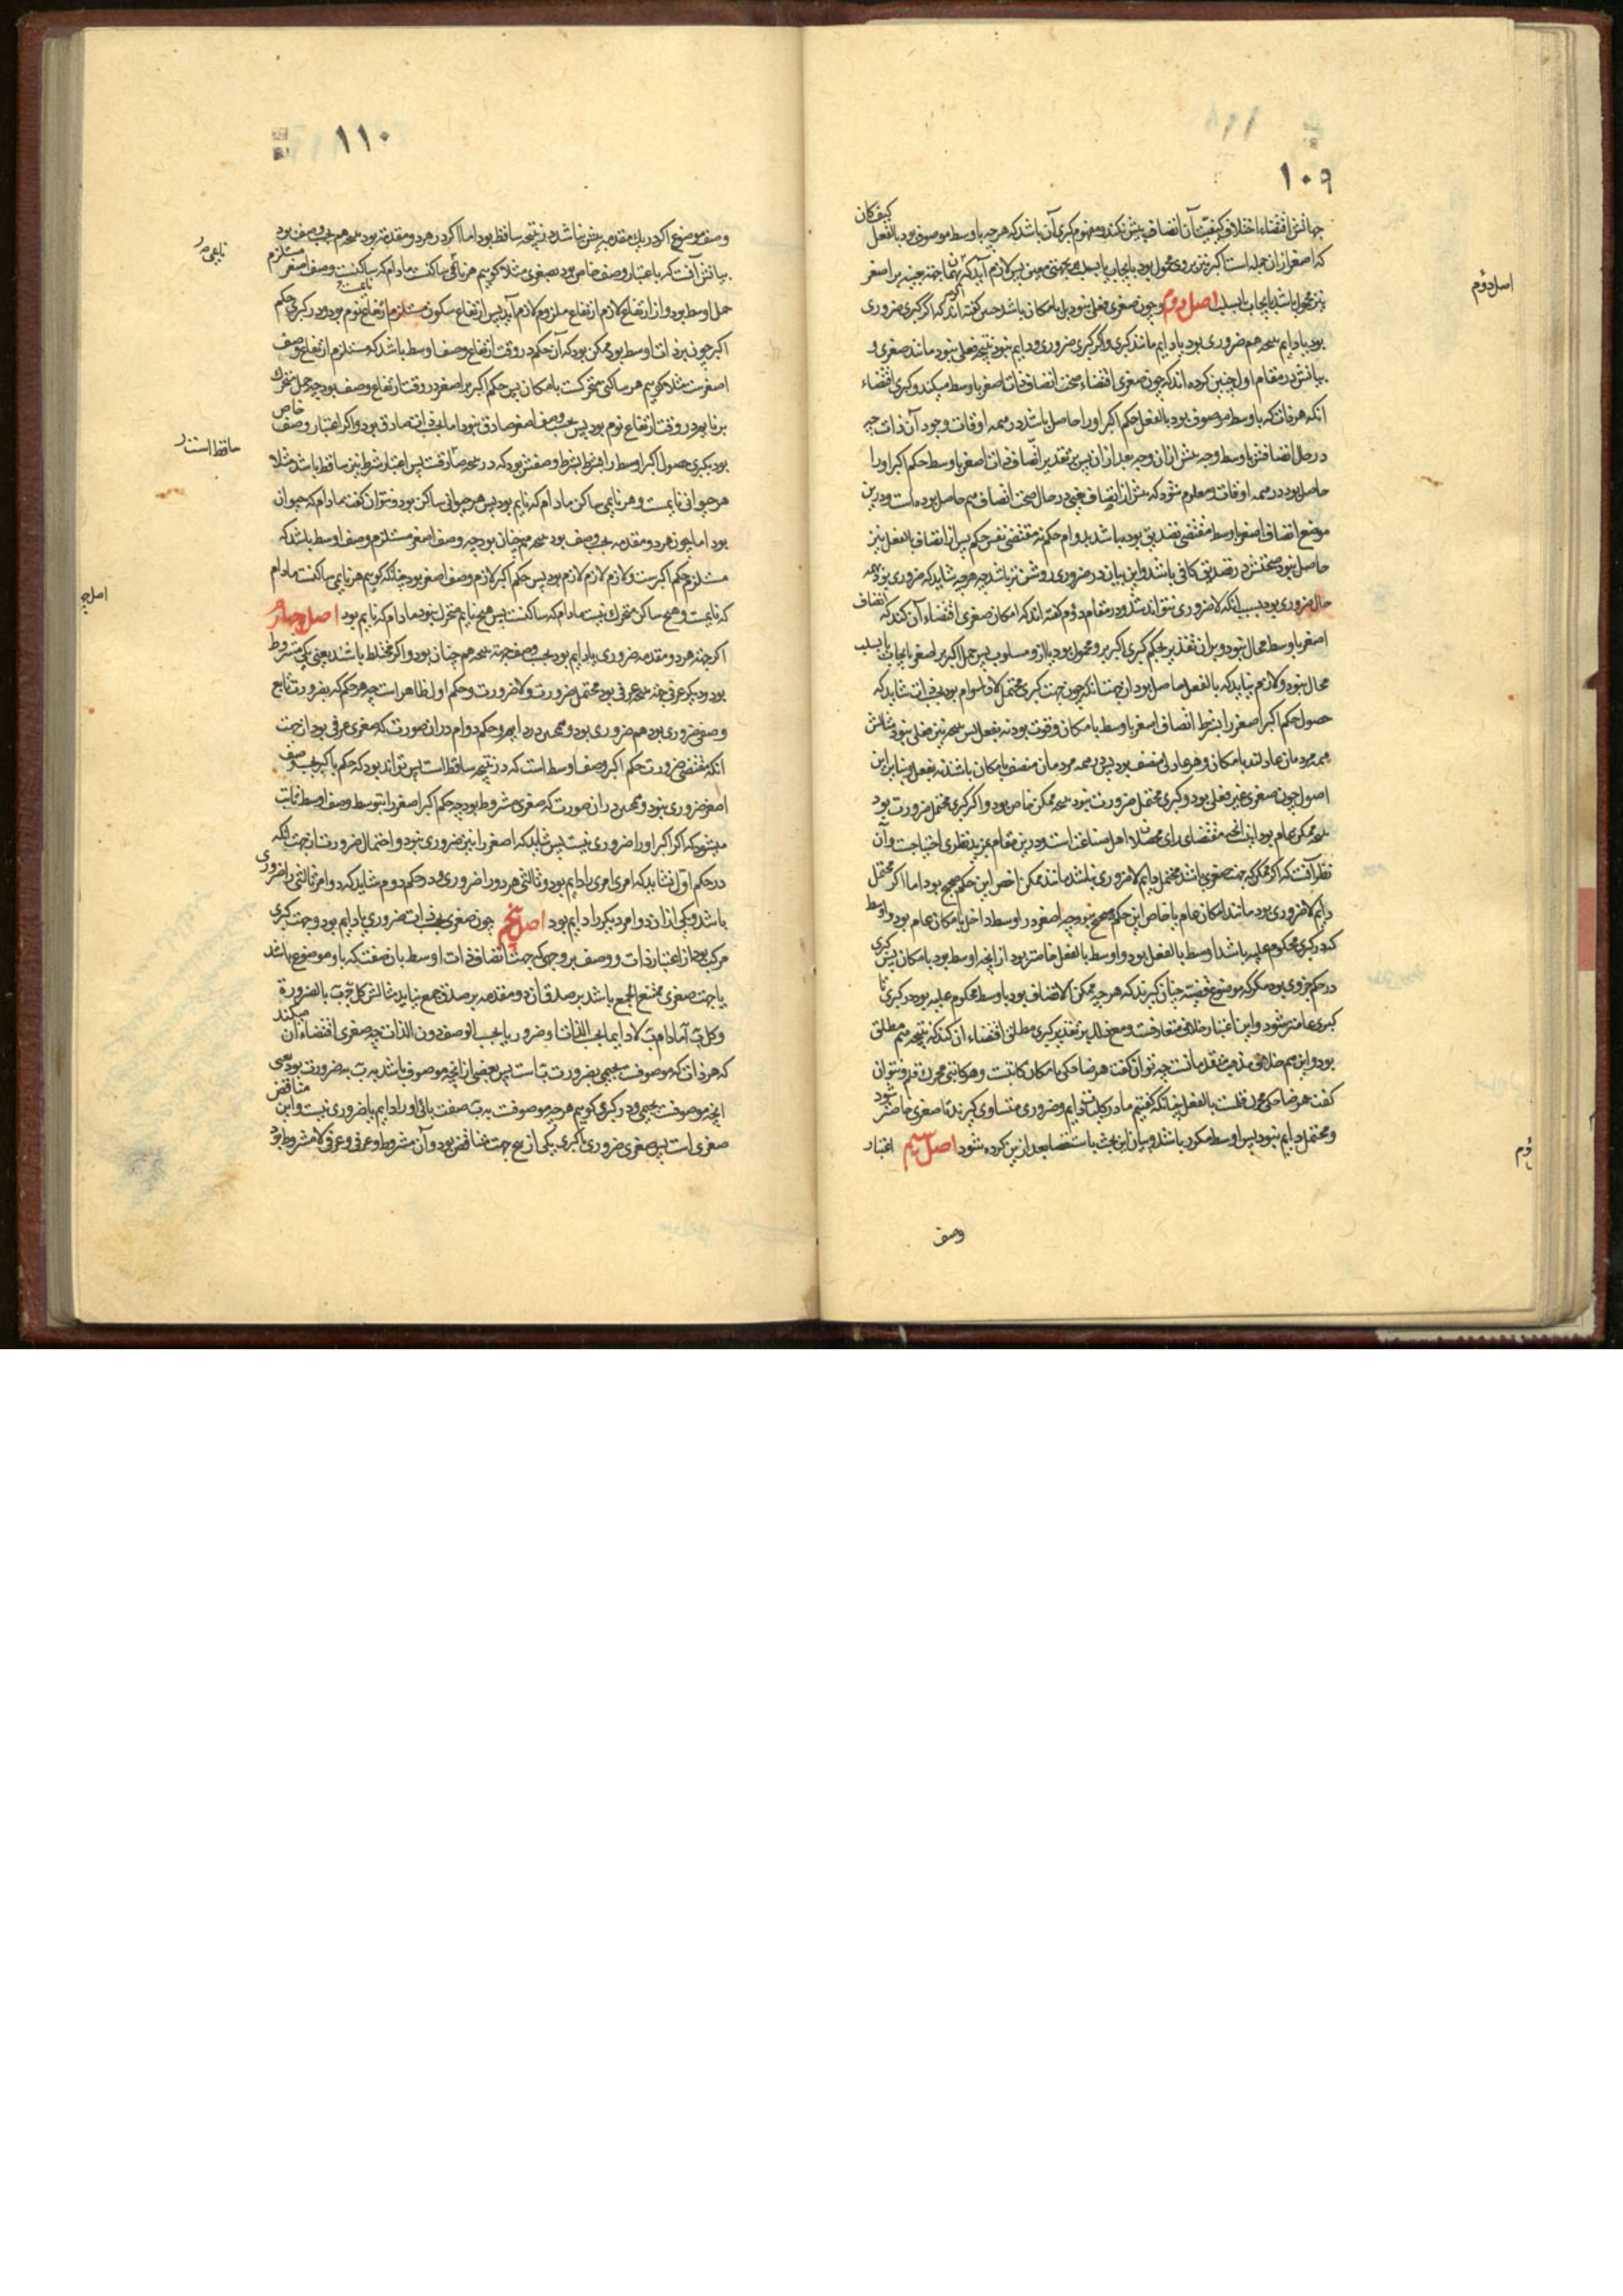 ۱۰۹
کیف کان
جهاتش اقتضاء اختلاف کیفیت آن اتصاف بیش نکند و مفهوم کبری آن باشد که هرچه باوسط موصوف بود بالفعل
که اصغر از ان جمله است اکبر نیز بروی محمول بود بایجاب یا بسلب پس لازم آید که بعینه بر اصغر
نیز محمول باشد بایجاب یا بسلب اصل دوم و چون صغری فعلی نبود بل بامکان باشد چنین گفته اند که اگر کبری ضروری
بود یا دایم نتیجه هم ضروری بود یا دایم مانند کبری و اگر کبری ضروری و دایم نبود نتیجه فعلی نبود مانند صغری و
بیانش در مقام اول چنین کرده اند که چون صغری اقتضاء صحت اتصاف ذات اصغر باوسط میکند و کبری اقتضاء
انکه هر ذات که باوسط موصوف بود بالفعل حکم اکبر او را حاصل باشد در همه اوقات وجود آن ذات چه
در حال اتصافش باوسط و چه پیش از ان و چه بعد از ان پس بر تقدیر اتصاف ذات اصغر باوسط حکم اکبر او را
حاصل بود در همه اوقات و معلوم شود که پیش از اتصاف یعنی در حال صحت اتصاف هم حاصل بوده است و درین
موضع اتصاف اصغر باوسط مقتضی تصدیق بوده باشد بدوام حکم نه مقتضی نفس حکم پس اگر اتصاف بالفعل نیز
حاصل نبود صحتش در تصدیق کافی باشد و این بیان در ضروری روشن تر باشد چه هرچه شاید که ضروری بود همه
حال ضروری بود بسبب انکه لاضروری نتواند شد و در مقام دوم گفته اند که امکان صغری اقتضاء آن کند که اتصاف
اصغر باوسط محال نبود و بر ان تقدیر بحکم کبری اکبر برو محمول بود یا ازو مسلوب پس حمل اکبر بر اصغر بایجاب یا بسلب
محال نبود و لازم نیاید که بالفعل حاصل بود از جهت انکه چون جهت کبری محتمل لادوام بود بحسب ذات شاید که
حصول حکم اکبر اصغر را بشرط اتصاف اصغر باوسط بامکان و قوت بود نه بفعل پس نتیجه نیز فعلی نبود مثالش
همه مردمان عادلند بامکان و هر عادلی منصف بود پس همه مردمان منصف بامکان باشند نه بفعل و بنابر این
اصول چون صغری غیر فعلی بود و کبری محتمل ضرورت نبود نتیجه ممکن خاص بود و اگر کبری محتمل ضرورت بود
نتیجه ممکن عام بود اینست انچه مقتضای رای محصلان اهل صناعتست و درین مقام بمزید نظری احتیاجست و آن
نظر آنست که اگر ممکن که جهت صغری باشد محتمل دایم لاضروری نباشد مانند ممکن اخص این حکم صحیح بود اما اگر محتمل
دایم لاضروری بود مانند امکان عام یا خاص این حکم صحیح نبود چه اصغر در اوسط داخل بامکان عام بود و اوسط
که در کبری محکوم علیه باشد اوسط بالفعل بود و اوسط بالفعل خاصتر بود از انچه اوسط بود بامکان پس کبری
در حکم جزوی بود مگر که موضوع قضیه چنان گیرند که هرچه ممکن الاتصاف بود باوسط محکوم علیه بود در کبری تا
کبری عامتر شود و این اعتبار خلاف متعارفست و مع ذلک بر تقدیر کبری مطلق اقتضاء آن کند که نتیجه هم مطلق
بود و این هم خلاف مذهب متقدمانست چه توان گفت هر ضاحکی بامکان کاتبست و هر کاتبی محرک قلم و نتوان
گفت هر ضاحکی محرک قلمست بالفعل چنانکه گفتیم مادر کلیات دایم و ضروری متساوی گیرند تا صغری خاصتر شود
و محتمل دایم نبود پس اوسط مکرر باشد و بیان این بحث باستقصا بعد ازین کرده شود اصل سیم اعتبار
وصف
اصل دوم
۱۱۰
وصف موضوع اگر در یک مقدمه بیش نباشد در نتیجه ساقط بود اما اگر در هر دو مقدمه بود نتیجه هم وصفی بود
بیانش آنست که با اعتبار وصف خاص بود بصغری مثلا گوییم هر نائمی ساکنست مادام که ساکنست وصف اصغر مستلزم
حمل اوسط بود و از ارتفاع لازم ارتفاع ملزوم لازم آید پس ارتفاع سکون مستلزم ارتفاع نوم بود و در کبری حکم
اکبر چون بر ذات اوسط بود ممکن بود که آن حکم در وقت ارتفاع وصف اوسط باشد که مستلزم ارتفاع وصف
اصغرست مثلا گوییم هر ساکنی متحرکست بامکان پس حکم اکبر بر اصغر در وقت ارتفاع وصف بود چه حمل متحرک
بر نایم در وقت ارتفاع نوم بود پس بحسب وصف اصغر صادق نبود اما بحسب ذات صادق بود و اگر اعتبار وصف خاص
بود بکبری حصول اکبر اوسط را بشرط وصفش بود که در نتیجه ساقطست پس اعتبار شرط نیز ساقط باشد مثلا
هر حیوانی نایمست و هر نایمی ساکن مادام که نایم بود پس هر حیوانی ساکن بود و نتوان گفت مادام که حیوان
بود اما چون هر دو مقدمه بحسب وصف بود نتیجه هم چنان بود چه وصف اصغر مستلزم وصف اوسط باشد که
مستلزم حکم اکبرست و لازم لازم لازم بود پس حکم اکبر لازم وصف اصغر بود چنانکه گوییم هر نایمی ساکنست مادام
که نایمست و هیچ ساکن متحرک نیست مادام که ساکنست پس هیچ نایم متحرک نبود مادام که نایم بود اصل چهارم
اگر جهت هر دو مقدمه ضروری یا دایم بود بحسب وصف جهت نتیجه هم چنان بود و اگر مختلط باشند یعنی یکی مشروط
بود و دیگر عرفی جهت نتیجه عرفی بود محتمل ضرورت و لاضرورت و حکم اول ظاهر است چه هر حکم که بضرورت تابع
وصفی ضروری بود هم ضروری بود و همچنین در دایم و حکم دوم در ان صورت که صغری عرفی بود از جهت
انکه مقتضی ضرورت حکم اکبر وصف اوسط است که در نتیجه ساقط است پس تواند بود که حکم باکبر بحسب وصف
اصغر ضروری نبود و همچنین در ان صورت که صغری مشروط بود چه حکم اکبر اصغر را بتوسط وصف اوسط ثابت
میشود که اگر اکبر او را ضروری نیست پس شاید که اصغر را نیز ضروری نبود و احتمال ضرورت از جهت انکه
در حکم اول شاید که امری امری را دایم بود و ثالثی هر دو را ضروری و در حکم دوم شاید که دو امر ثالثی را ضروری
باشد و یکی از ان دو امر دیگر را دایم بود اصل پنجم چون صغری بحسب ذات ضروری یا دایم بود و جهت کبری
مرکب بود از اعتبار ذات و وصف بر وجهی که جهت اتصاف ذات اوسط بان صفت که باو موضوع باشد
با جهت صغری ممتنع الجمع باشد بر صدق آن دو مقدمه بر صدق جمع نیاید مثالش کل ج ب بالضرورة
وکل ب آ مادام ب لا دایما بحسب الذات او ضروریا بحسب الوصف دون الذات چه صغری اقتضاء آن میکند
که هر ذات که موصوفست بجیمی بضرورت ب است پس بعضی از انچه موصوف باشد به ب به ضرورت بود یعنی
انچه موصوفست بجیمی و در کبری گوییم هرچه موصوفست به ب صفت بائی او را دایم یا ضروری نیست و این مناقض
صغری است پس صغری ضروری با کبری یکی از پنج جهت مناقض بود و آن مشروط و عرفی و عرفی لامشروط بود
اصل چهارم